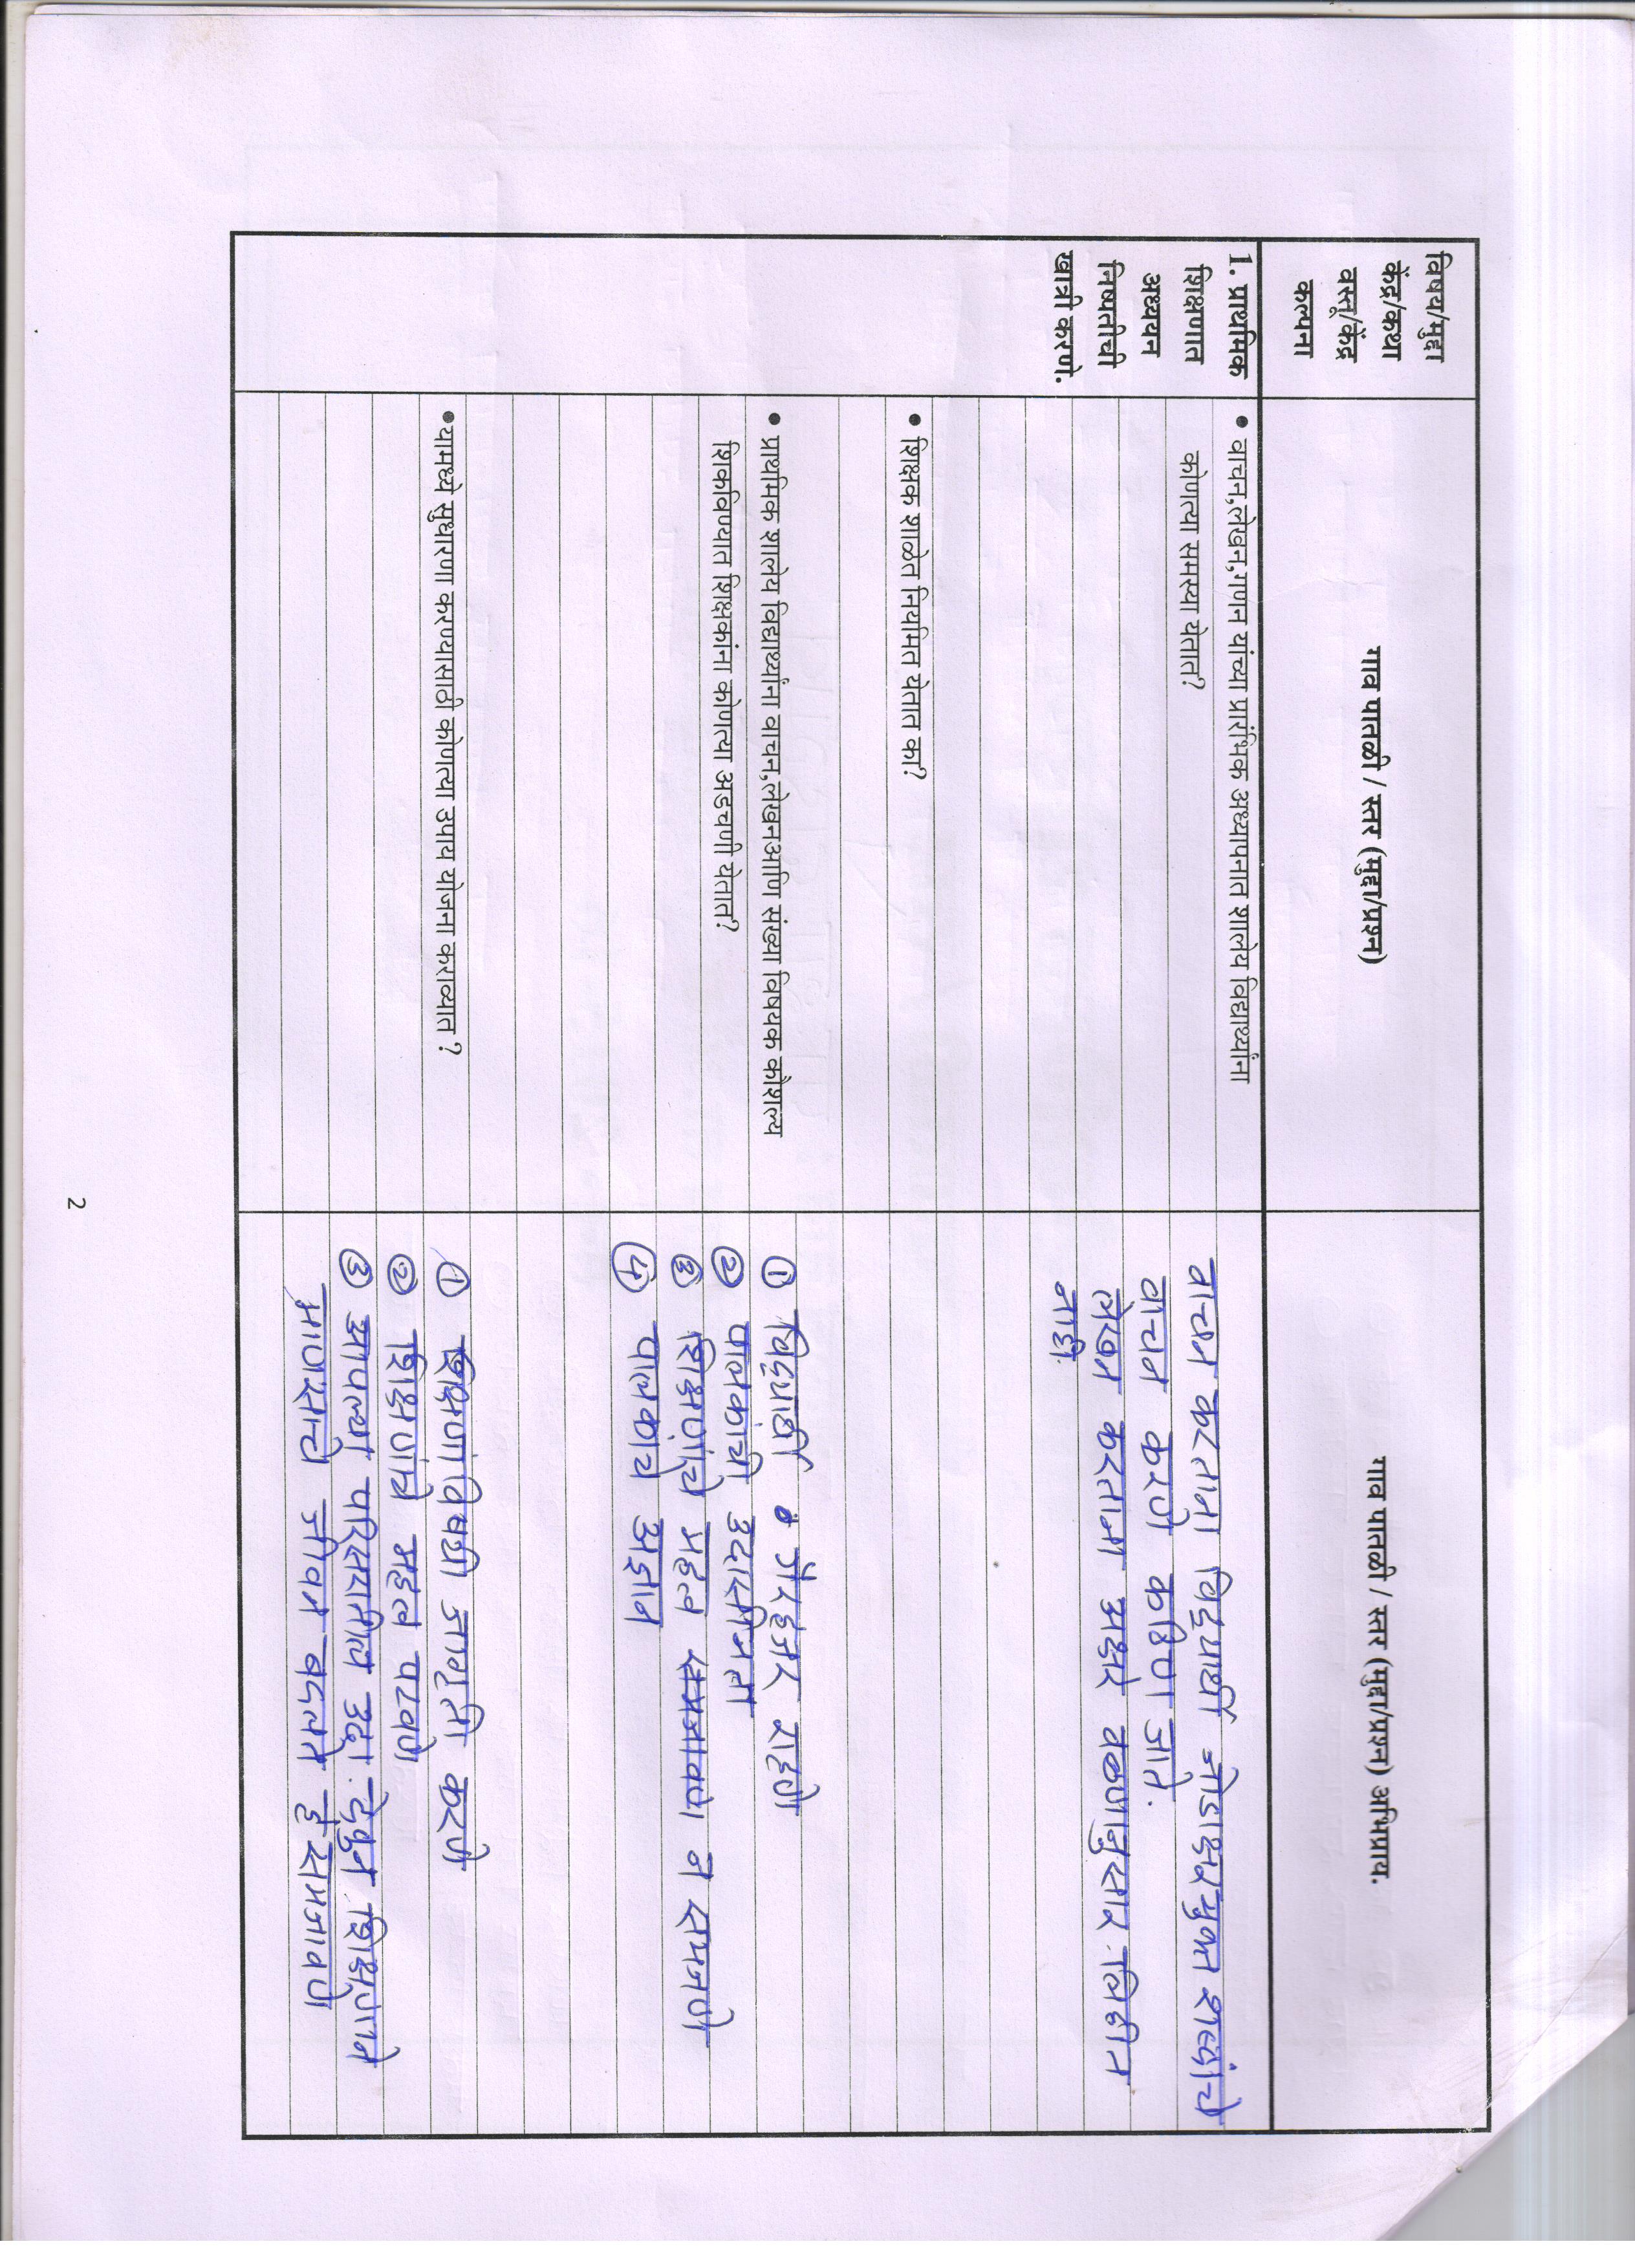 विषय/मुद्दा
केंद्र/कथा
वस्तू/केंद्र
कल्पना
गाव पातळी / स्तर (मुद्दा/प्रश्न)
गाव पातळी / स्तर (मुद्दा/प्रश्न) अभिप्राय.
1. प्राथमिक
शिक्षणात
अध्ययन
निष्पतीची
खात्री करणे.
• वाचन,लेखन,गणन यांच्या प्रारंभिक अध्यापनात शालेय विद्यार्थ्यांना
कोणत्या समस्या येतात?
वाचन करताना विद्यार्थी जोडाक्षरयुक्त शब्दांचे
वाचन करणे कठिण जाते.
लेखन करताना अक्षरे वळणानुसार लिहीत
नाही.
• शिक्षक शाळेत नियमित येतात का?
• प्राथमिक शालेय विद्यार्थ्यांना वाचन,लेखनआणि संख्या विषयक कौशल्य
शिकविण्यात शिक्षकांना कोणत्या अडचणी येतात?
① विद्यार्थी गैरहजर राहणे
② पालकांची उदासीनता
③ शिक्षणांचे महत्व समजावणे न समजणे
④ पालकांचे अज्ञान
•यामध्ये सुधारणा करण्यासाठी कोणत्या उपाय योजना कराव्यात ?
① शिक्षणाविषयी जागृती करणे
② शिक्षणांचे महत्व पटवणे
③ आपल्या परिसरातील उदा. देवुन शिक्षणाने
माणसाचे जीवन बदलते हे समजावणे
2